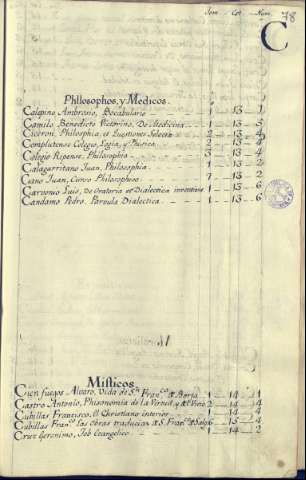 Tom. Cot. Num. 78
C
Philosophos, y Medicos.
Calepino Ambrosio, Bocabulario 1 13 1
Camilo Benedicto Victorino, De Medicina 1 13 3
Ciceron, Philosophia, et Questiones Selecta 2 13 4
Complutense Colegio, Logia, y Phisica 2 13 4
Colegio Ripense, Philosophia 3 13 4
Calagurritano Juan, Philosophia 1 13 2
Cano Juan, Curso Philosophico 7 13 2
Carvonio Luis, De Oratoria et Dialectica inventione 1 13 6
Candamo Pedro, Parvula Dialectica 1 13 6
Misticos.
Cien fuegos Alvaro, Vida de Sn. Franco. de Borja 1 14 1
Castro Antonio, Phisonomia de la Virtud, y del Vicio 2 14 2
Cubillas Francisco, El Christiano interior 1 14 4
Cubillas Franco. las Obras traducidas de S. Franco. de Sales 6 15 4
Cruz Geronimo, Job Evangelico 1 14 2